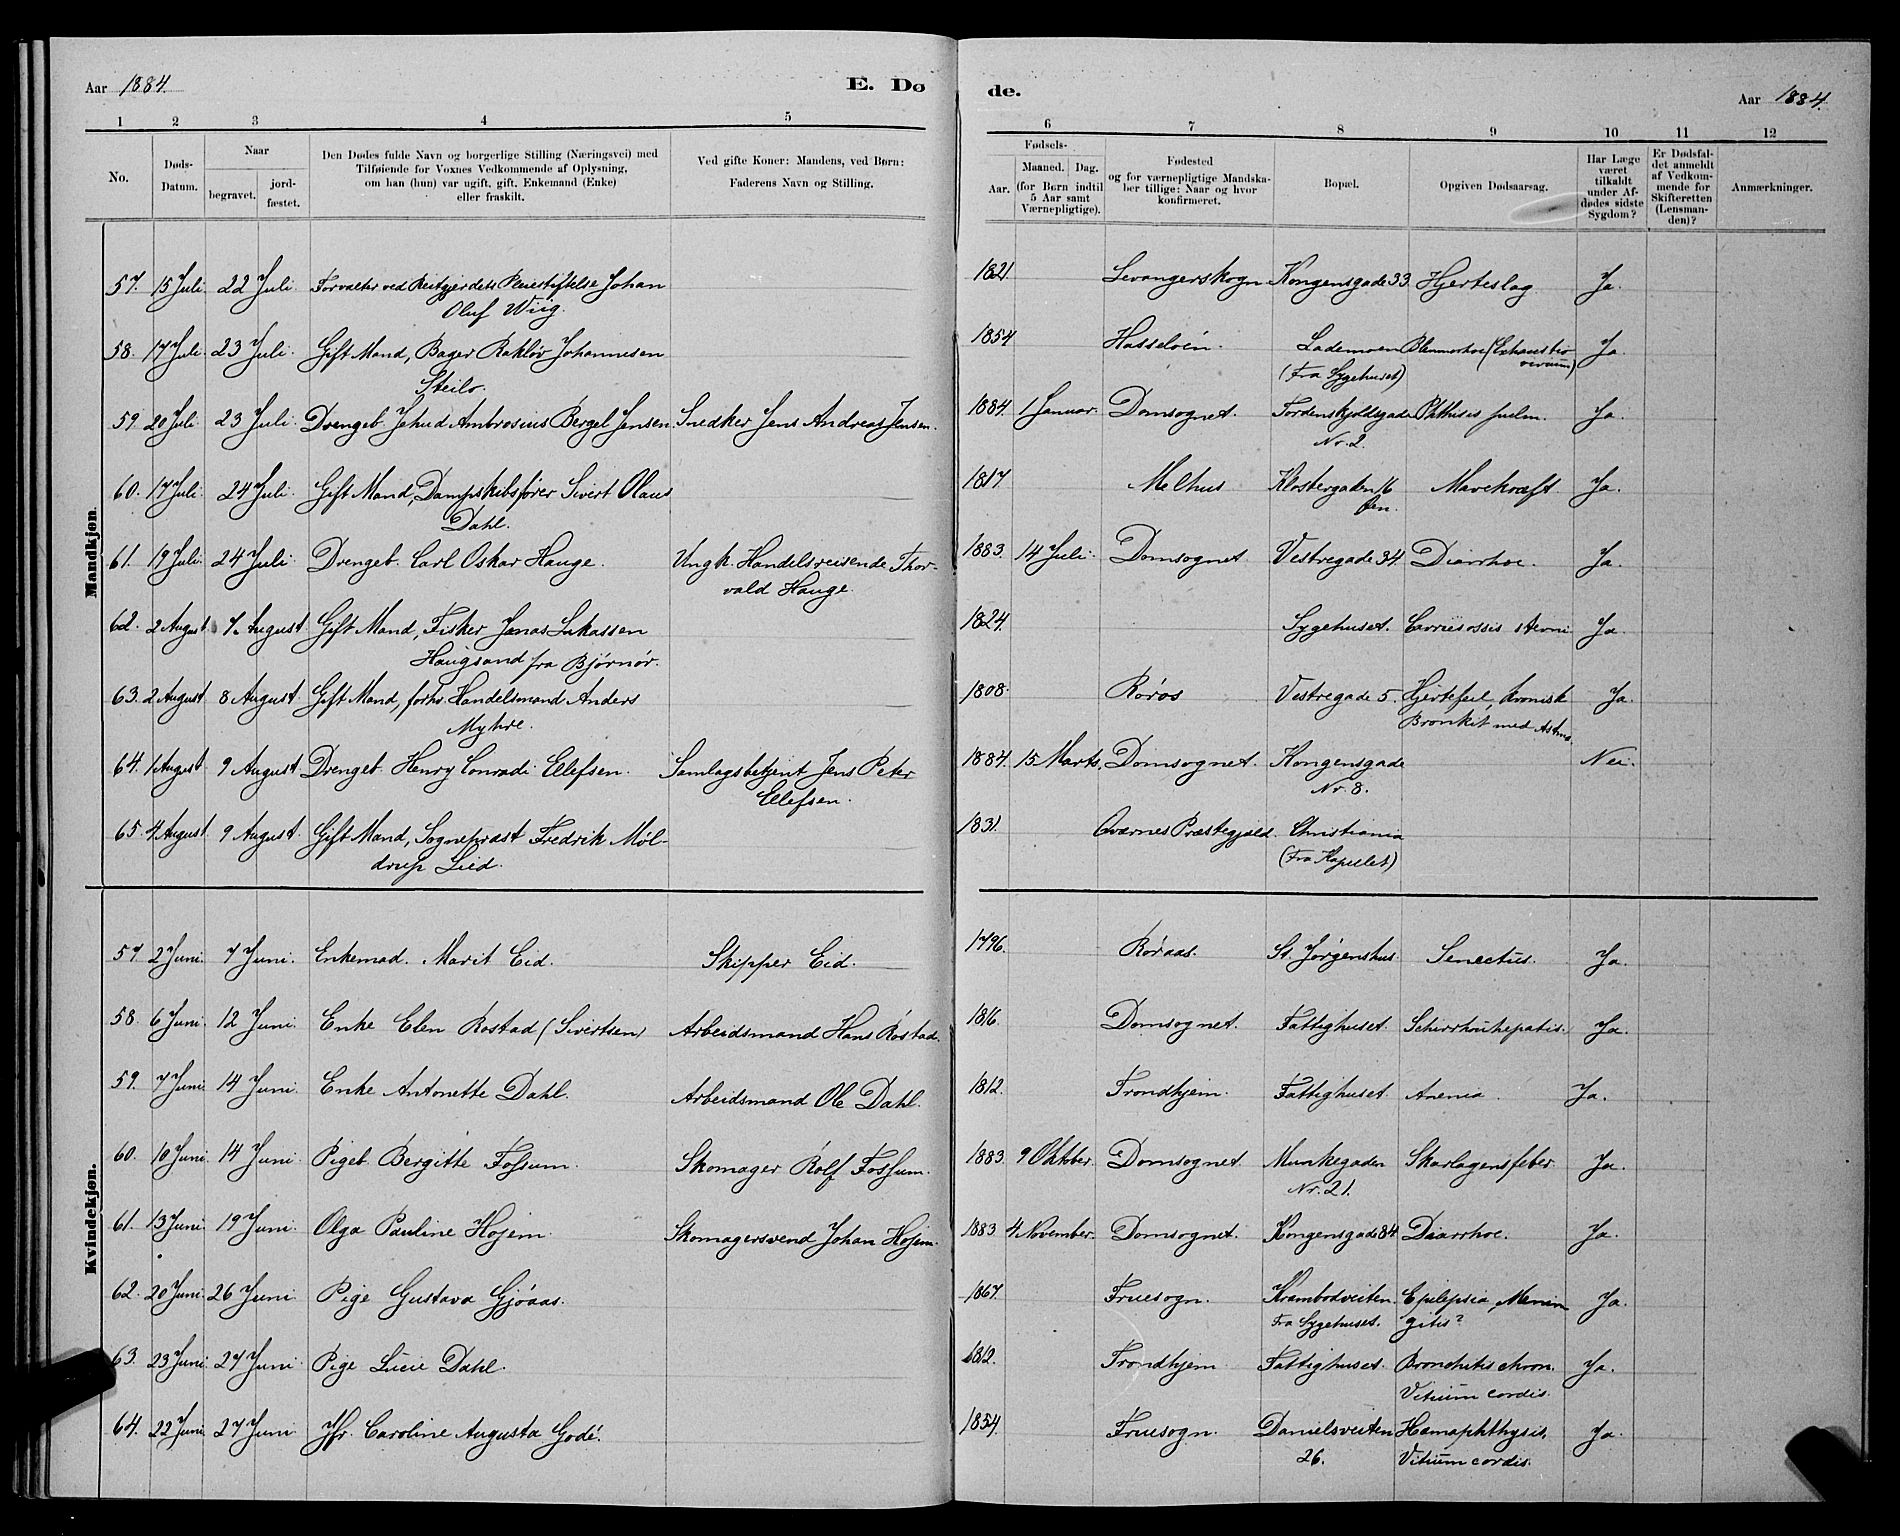 Aar 1884. E. Dø de. Aar 1884.
1 2 3 4 5 6 7 8 9 10 11 12
No.
Døds-
Datum.
Naar
begravet.
jord-
fæstet.
Den Dødes fulde Navn og borgerlige Stilling (Næringsvei) med
Tilføiende for Voxnes Vedkommende af Oplysning,
om han (hun) var ugift, gift, Enkemand (Enke)
eller fraskilt.
Ved gifte Koner: Mandens, ved Børn:
Faderens Navn og Stilling.
Fødsels-
Aar.
Maaned. Dag.
(for Børn indtil
5 Aar samt
Værnepligtige).
Fødested
og for værnepligtige Mandska-
ber tillige: Naar og hvor
konfirmeret.
Bopæl.
Opgiven Dødsaarsag.
Har Læge
været
tilkaldt
under Af-
dødes sidste
Sygdom?
Er Dødsfal-
det anmeldt
af Vedkom-
mende for
Skifteretten
(Lensman-
den)?
Anmærkninger.
Mandkjøn.
57. 15 Juli 22 Juli. Forvalter ved Reitgjerdets Pleiestiftelse Johan 1821. Levangerskogn Kongensgade 33. Hjerteslag Ja.
Oluf Wiig.
58. 17 Juli 23 Juli. Gift Mand, Bager Rakløv Johannesen 1854 Hasseløen. Lademoen Blennorhoe (Exhaustio Ja.
Steilo. (Fra Sygehuset) virium)
59. 20 Juli 23 Juli. Drengeb. Jahud Ambrosius Bergel Jensen. Snedker Jens Andreas Jensen. 1884. 1 Januar. Domsognet. Tordenskjoldsgade Phthisis pulm. Ja.
Nr. 2.
60. 17 Juli. 24 Juli. Gift Mand, Dampskibsfører Sivert Olaus 1817 Melhus Klostergaden 16 Mavekræft Ja.
Dahl. Øen.
61. 19 Juli. 24 Juli. Drengeb. Carl Oskar Hauge. Ungk. Handelsreisende Thor- 1883. 14 Juli. Domsognet Vestregade 34. Diarrhoe. Ja.
vald Hauge.
62. 2 August 7. August Gift Mand, Fisker Jonas Lukassen 1824. Sygehuset. Ja.
Haugsand fra Bjørnør.
63. 2 August. 8 August Gift Mand, forhv. Handelsmand Anders 1808. Røros Vestregade 5. Hjertefeil, kronisk Ja.
Myhre. Bronkit med Astma.
64. 1 August 9 August Drengeb. Henry Conradi Ellefsen. Samlagsbetjent Jens Peter 1884. 15 Marts. Domsognet. Kongensgade Nei.
Ellefsen. Nr. 8.
65. 4 August. 9 August. Gift Mand, Sognepræst Fredrik Møl- 1831. Qværnes Præstegjæld. Christiania
drup Lied. (Fra Kapellet)
Kvindekjøn.
57. 2 Juni. 7 Juni. Enkemad. Marit Eid. Skipper Eid. 1796. Røraas. St. Jørgenshus. Senectus. Ja.
58. 6 Juni. 12 Juni. Enke Elen Rostad (Sivertsen) Arbeidsmand Hans Rostad. 1816. Domsognet. Fattighuset. Schirrhouhepatis. Ja.
59. 7 Juni. 14 Juni. Enke Antonette Dahl. Arbeidsmand Ole Dahl. 1812. Trondhjem. Fattighuset. Anemia. Ja.
60. 10 Juni. 14 Juni. Pigeb. Bergitte Fossum. Skomager Rolf Fossum. 1883. 9 Oktober. Domsognet. Munkegaden Skarlagensfeber Ja.
Nr. 21.
61. 13 Juni. 19 Juni. Olga Pauline Hojem. Skomagersvend Johan Hojem. 1883. 4 November. Domsognet. Kongensgade 84. Diarrhoe. Ja.
62. 20 Juni. 26 Juni. Pige Gustava Gjøaas. 1867. Fruesogn. Krambodveiten. Epilepsia, Menin Ja.
Fra Sygehuset. gitis?
63. 23 Juni. 27 Juni. Pige Lucie Dahl. 1812. Trondhjem. Fattighuset. Bronchitis chron. Ja.
Vitium cordis.
64. 22 Juni. 27 Juni. Jfr. Caroline Augusta Godé. 1854. Fruesogn. Danielsveiten Hæmaphthysis. Ja.
26. Vitium cordis.